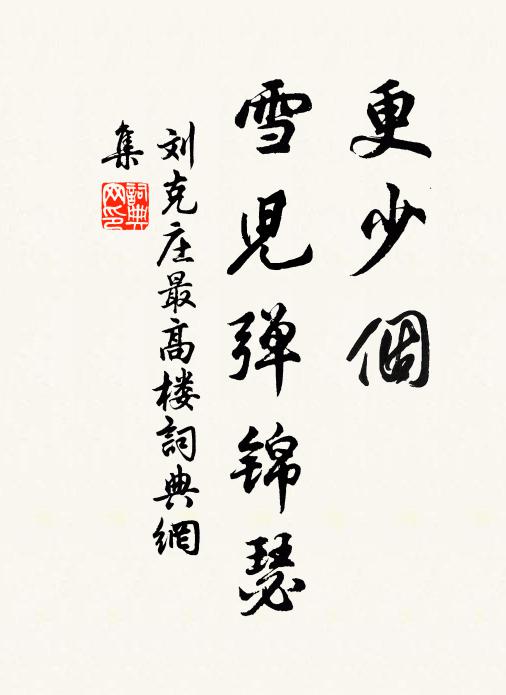 更少個
雪児弹锦瑟
刘克庄最高楼詞典網
集
詞典
网印